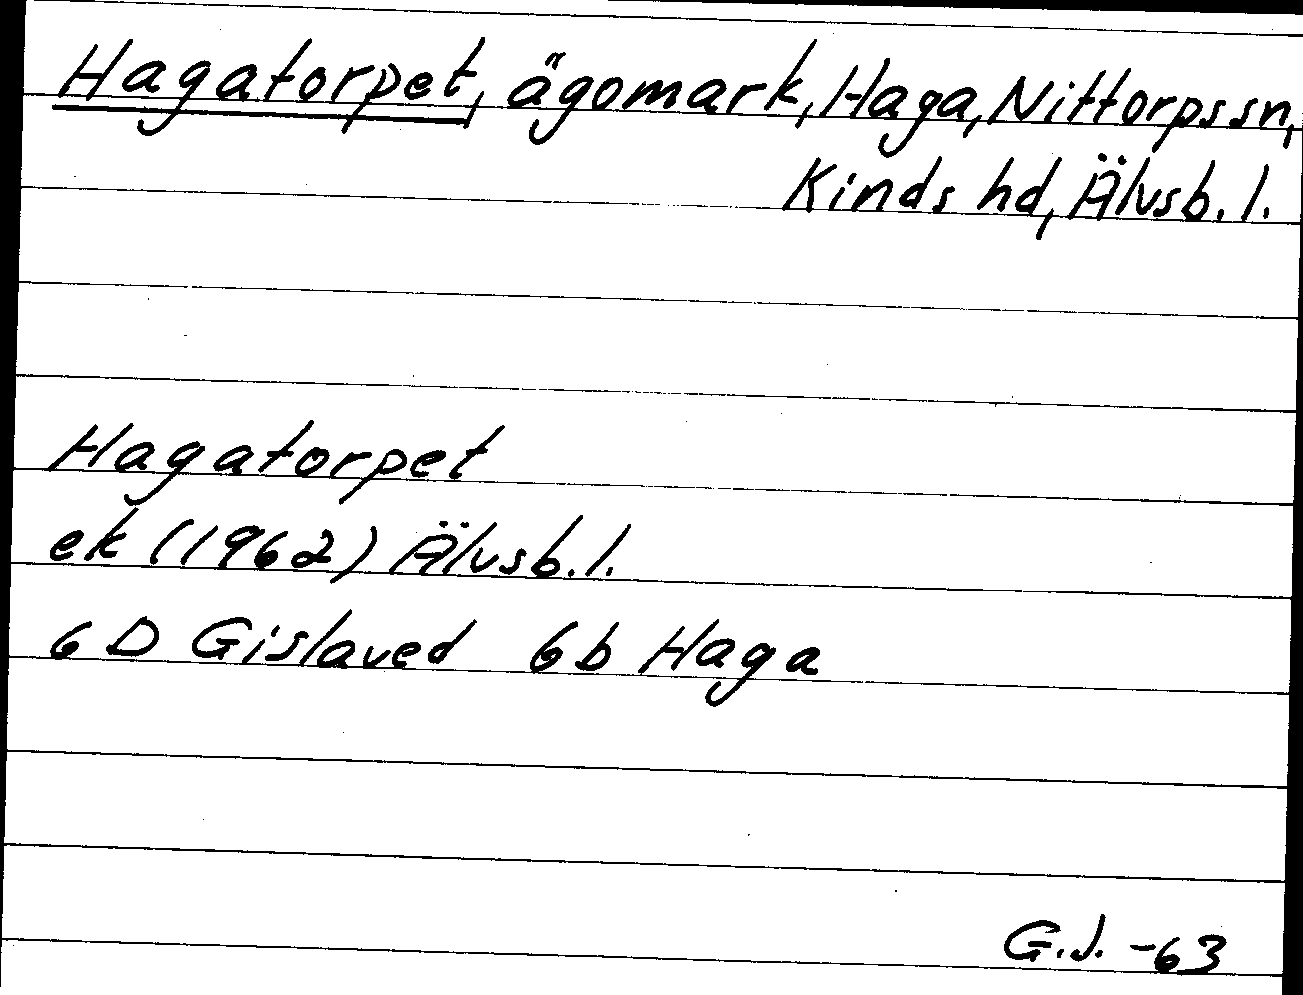 Hagatorpet, ägomark, Haga, Nittorps sn,
Kinds hd, Älvsb. l.
Hagatorpet
ek (1962) Älvsb. l.
6 D Gislaved 6b Haga
G.J. -63